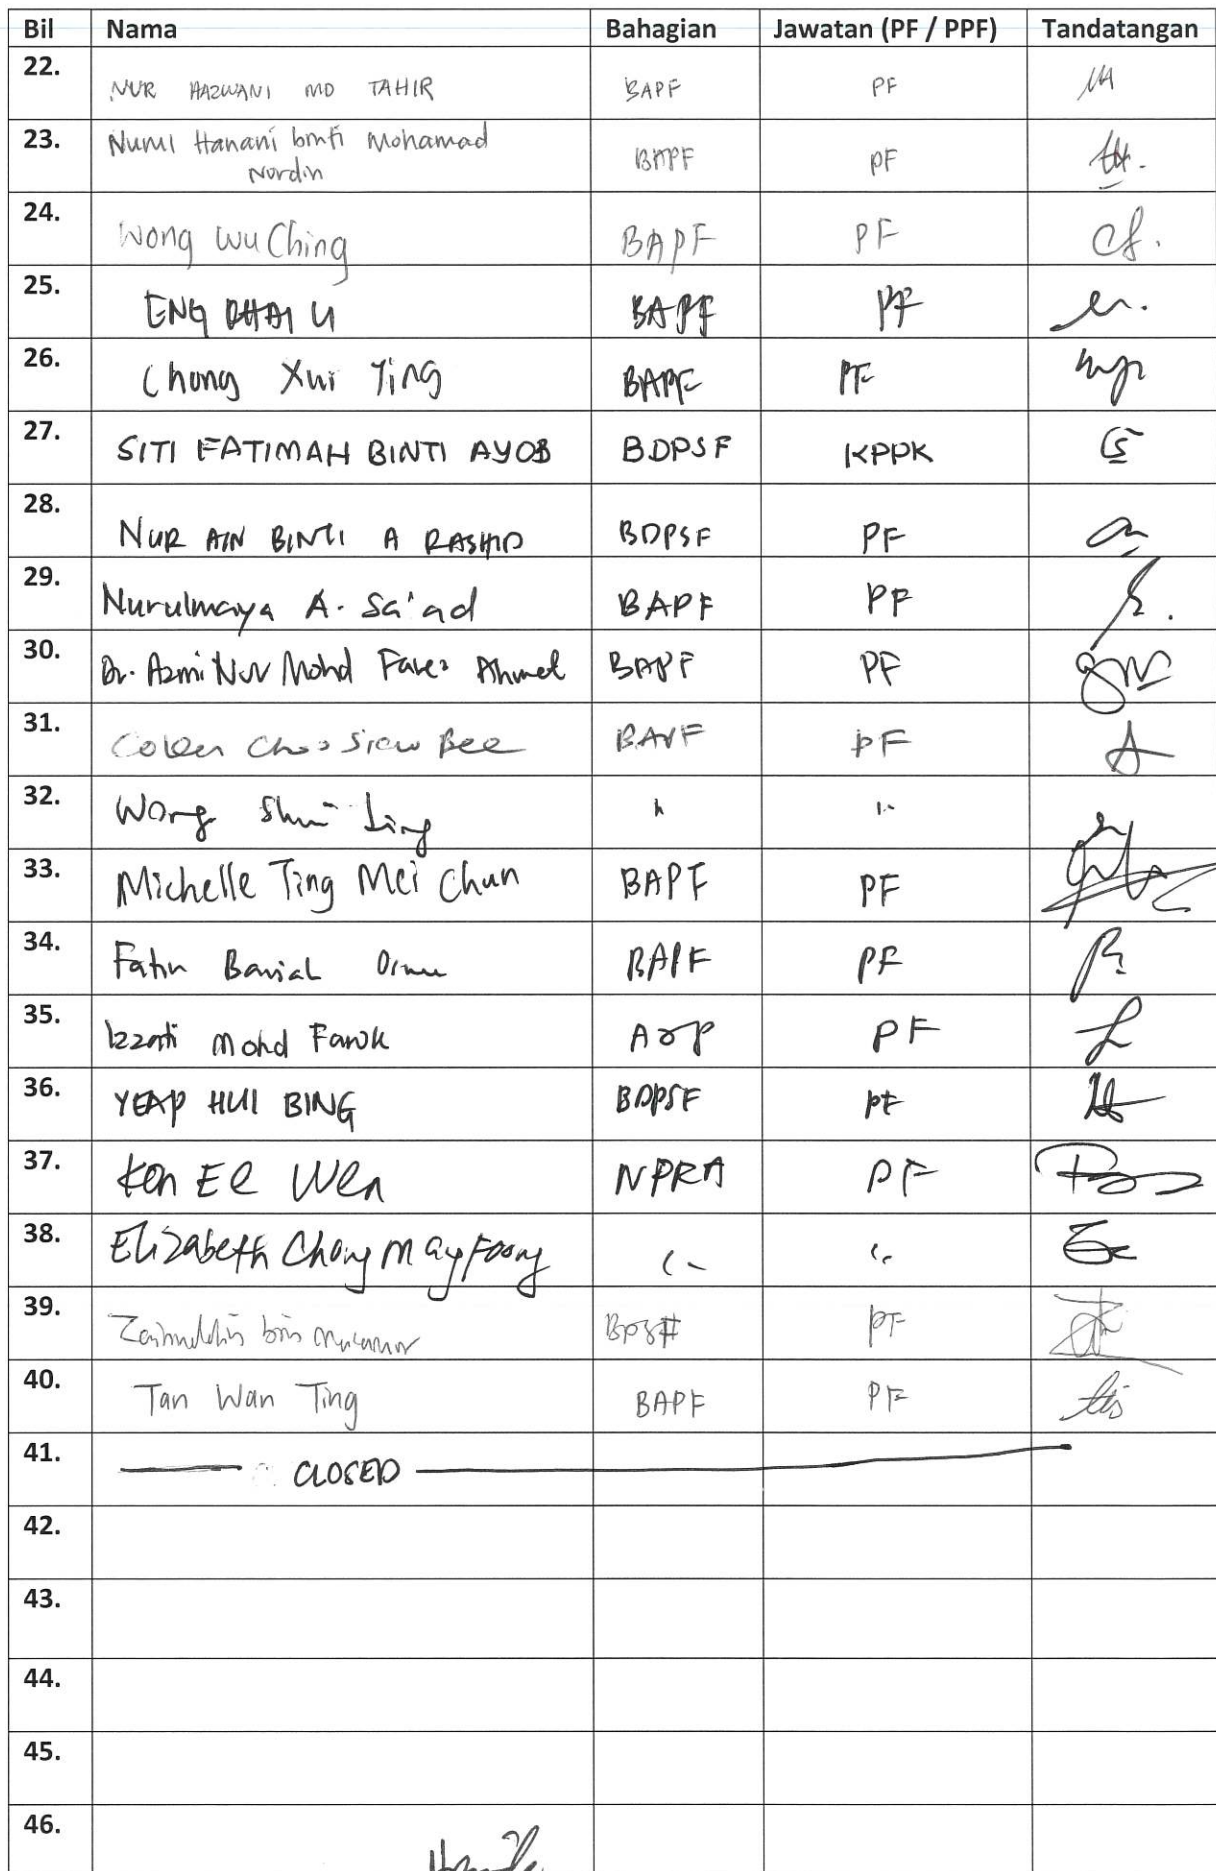 Bil Nama Bahagian Jawatan (PF / PPF) Tandatangan
22. NUR HAZWANI MD TAHIR BAPF PF
23. Nurul Hanani binti Mohamad Nordin BAPF PF
24. Wong Wu Ching BAPF PF
25. ENG BAPF PF
26. Chong Xui Ying BAPF PF
27. SITI FATIMAH BINTI AYOB BDPSF KPPK
28. NUR AIN BINTI A RASHID BDPSF PF
29. Nurulmaya A. Sa'ad BAPF PF
30. Dr. Azmi Nur Mohd Farez Ahmat BAPF PF
31. Choo Siew Bee BAPF PF
32. Wong Ling "  "
33. Michelle Ting Mei Chun BAPF PF
34. Fatin BAPF PF
35. Izzati Mohd Farok PF
36. YEAP HUI BING BDPSF PF
37. Ken Ee Wen NPRA PF
38. Elizabeth Chong May Foong "  "
39. bin PF
40. Tan Wan Ting BAPF PF
41. CLOSED
42.
43.
44.
45.
46.